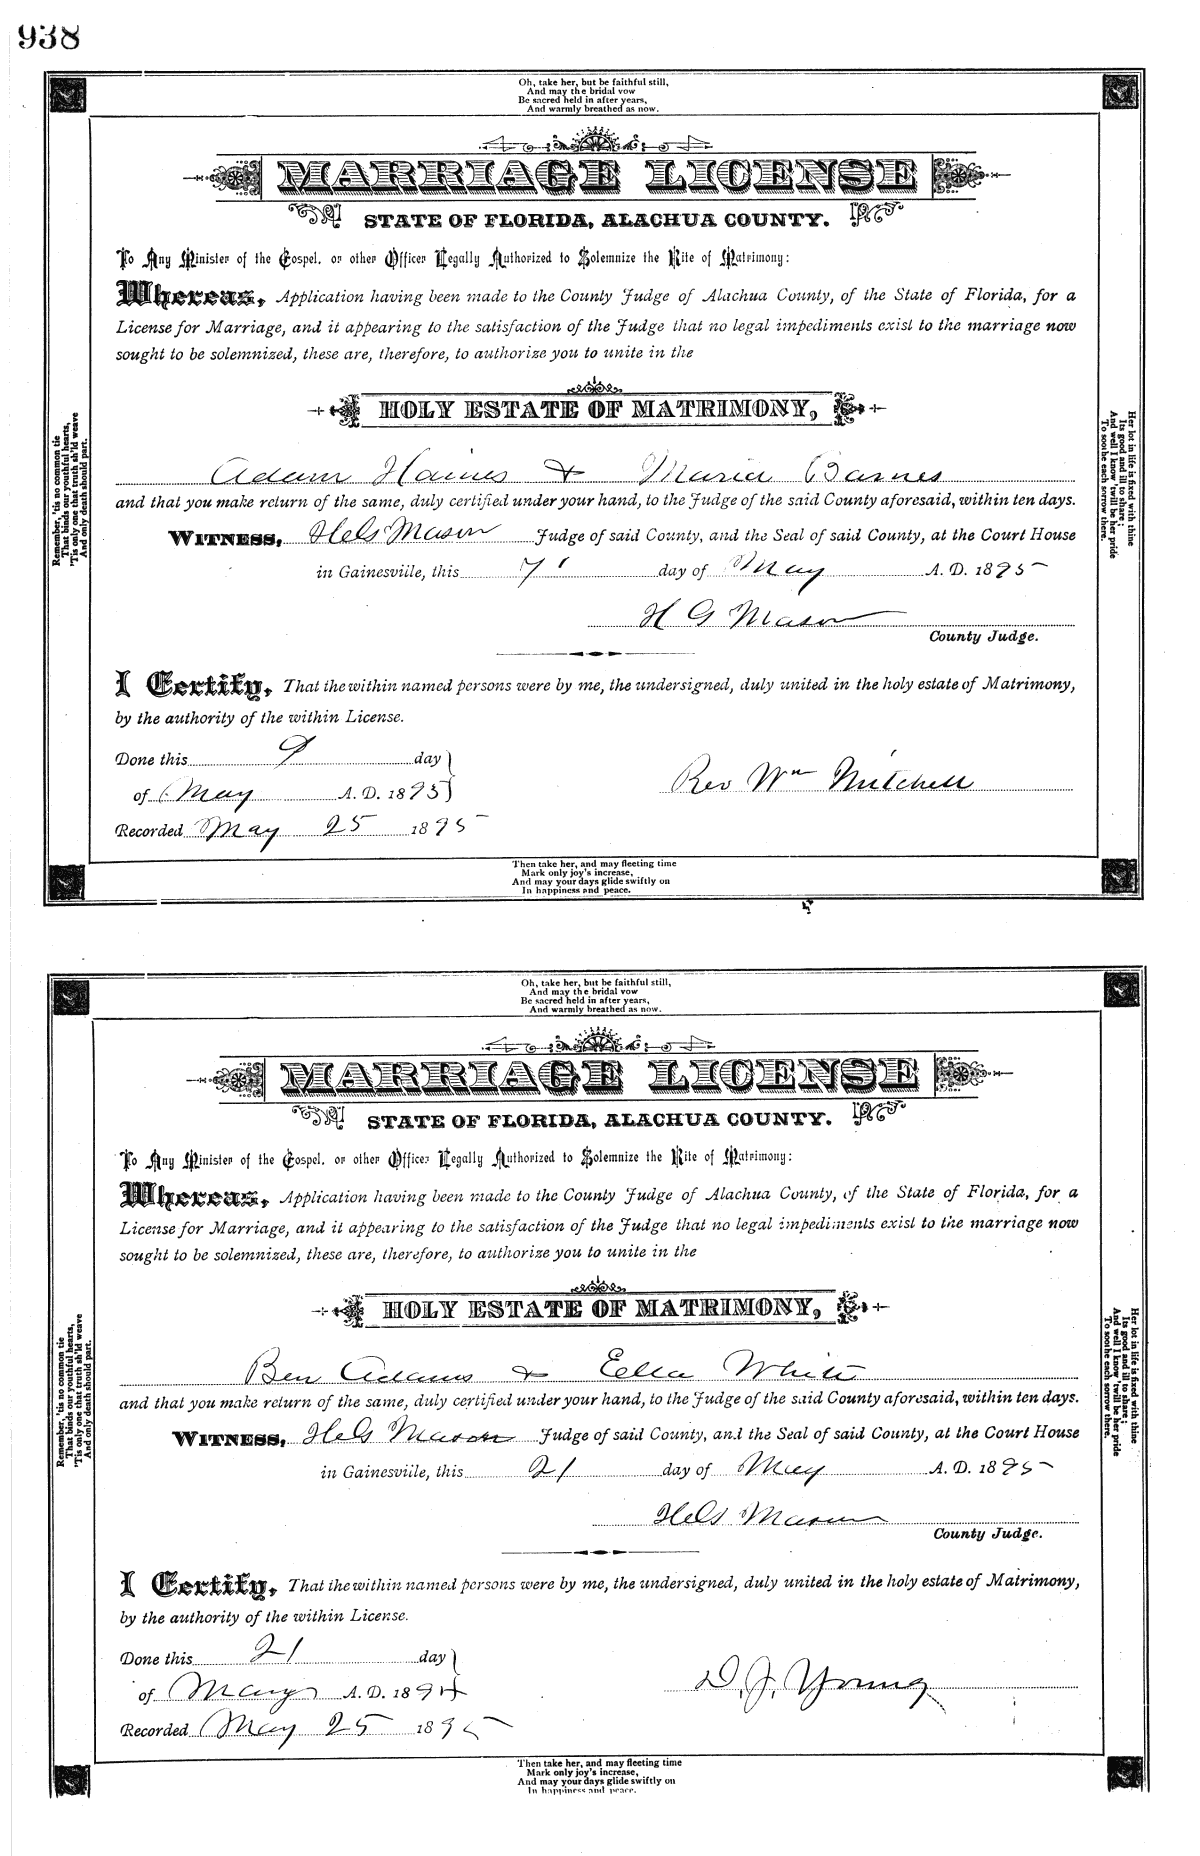 938
Oh, take her, but be faithful still,
And may the bridal vow
Be sacred held in after years,
And warmly breathed as now.
MARRIAGE LICENSE
STATE OF FLORIDA, ALACHUA COUNTY.
To Any Minister of the Gospel, or other Officer Legally Authorized to Solemnize the Rite of Matrimony:
Whereas, Application having been made to the County Judge of Alachua County, of the State of Florida, for a
License for Marriage, and it appearing to the satisfaction of the Judge that no legal impediments exist to the marriage now
sought to be solemnized, these are, therefore, to authorize you to unite in the
HOLY ESTATE OF MATRIMONY,
Adam Haines & Maria Barnes
and that you make return of the same, duly certified under your hand, to the Judge of the said County aforesaid, within ten days.
WITNESS, Mason Judge of said County, and the Seal of said County, at the Court House
in Gainesville, this 7 day of May A. D. 1895
H G Mason
County Judge.
I Certify, That the within named persons were by me, the undersigned, duly united in the holy estate of Matrimony,
by the authority of the within License.
Done this 9 day
of May A. D. 1895
Rev Wm Mitchell
Recorded May 25 1895
Then take her, and may fleeting time
Mark only joy's increase,
And may your days glide swiftly on
In happiness and peace.
Remember, 'tis no common tie
That binds our youthful hearts,
'Tis only one that truth sh'ld weave
And only death should part.
Her lot in life is fixed with thine
Its good and ill to share;
And well I know 'twill be her pride
To soothe each sorrow there.
Oh, take her, but be faithful still,
And may the bridal vow
Be sacred held in after years,
And warmly breathed as now.
MARRIAGE LICENSE
STATE OF FLORIDA, ALACHUA COUNTY.
To Any Minister of the Gospel, or other Officer Legally Authorized to Solemnize the Rite of Matrimony:
Whereas, Application having been made to the County Judge of Alachua County, of the State of Florida, for a
License for Marriage, and it appearing to the satisfaction of the Judge that no legal impediments exist to the marriage now
sought to be solemnized, these are, therefore, to authorize you to unite in the
HOLY ESTATE OF MATRIMONY,
Ben Adams & Ella White
and that you make return of the same, duly certified under your hand, to the Judge of the said County aforesaid, within ten days.
WITNESS, Mason Judge of said County, and the Seal of said County, at the Court House
in Gainesville, this 21 day of May A. D. 1895
Mason
County Judge.
I Certify, That the within named persons were by me, the undersigned, duly united in the holy estate of Matrimony,
by the authority of the within License.
Done this 21 day
of May A. D. 1894
D. J. Young
Recorded May 25 1895
Then take her, and may fleeting time
Mark only joy's increase,
And may your days glide swiftly on
In happiness and peace.
Remember, 'tis no common tie
That binds our youthful hearts,
'Tis only one that truth sh'ld weave
And only death should part.
Her lot in life is fixed with thine
Its good and ill to share;
And well I know 'twill be her pride
To soothe each sorrow there.